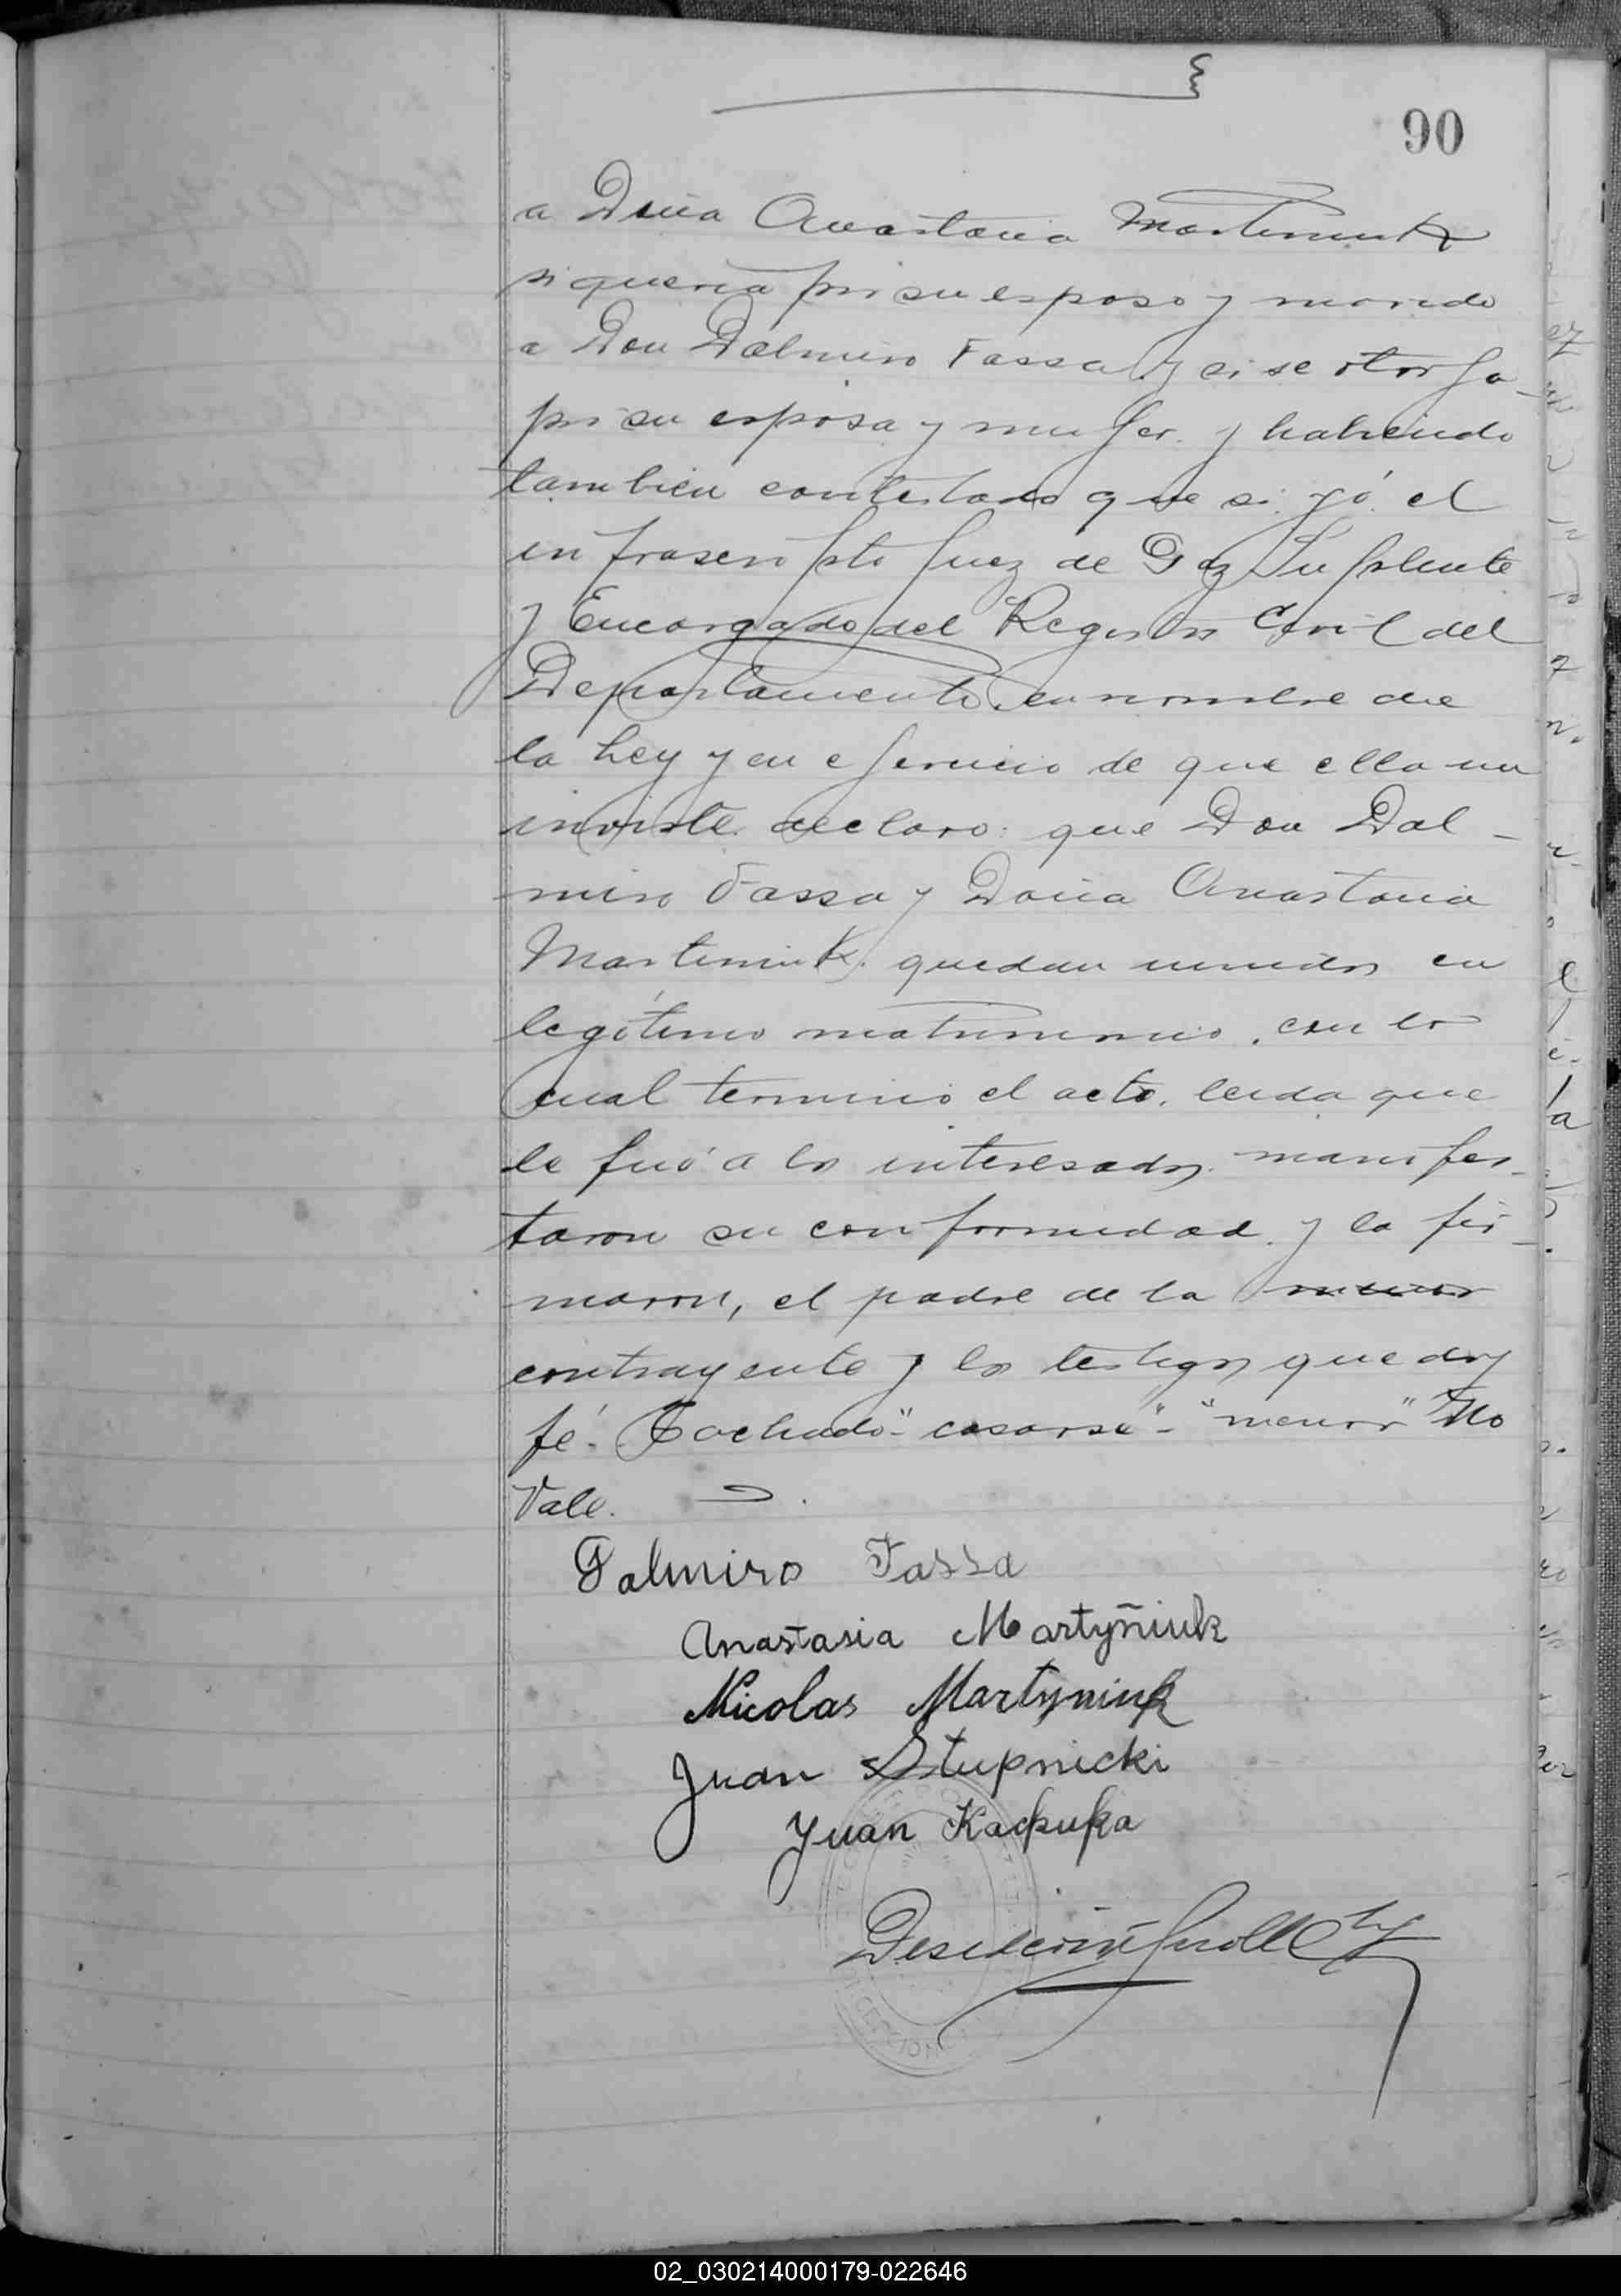 90
a Doña Anastacia Martiniuk
si queria por su esposo y marido
a Don Dalmiro Fassa y si se otorga
por su esposa y mujer. y habiendo
tambien contestado que si. yó. el
infrascripto Juez de Paz Suplente
y Encargado del Registro Civil del
Departamento. en nombre de
la Ley y en ejercicio de que ella me
inviste. declaro: que Don Dal-
miro Fassa y Doña Anastacia
Martiniuk. quedan unidos en
legítimo matrimonio. con lo
cual termino el acto. leida que
le fué a los interesados. manifes-
taron su conformidad. y la fir-
maron, el padre de la menor
contrayente y los testigos que doy
fé. Tachado "casarse" - "menor" No
Vale.
Dalmiro Fassa
Anastasia Martyñiuk
Nicolas Martyniuk
Juan Stupnicki
Juan Kackuka
02_030214000179-022646